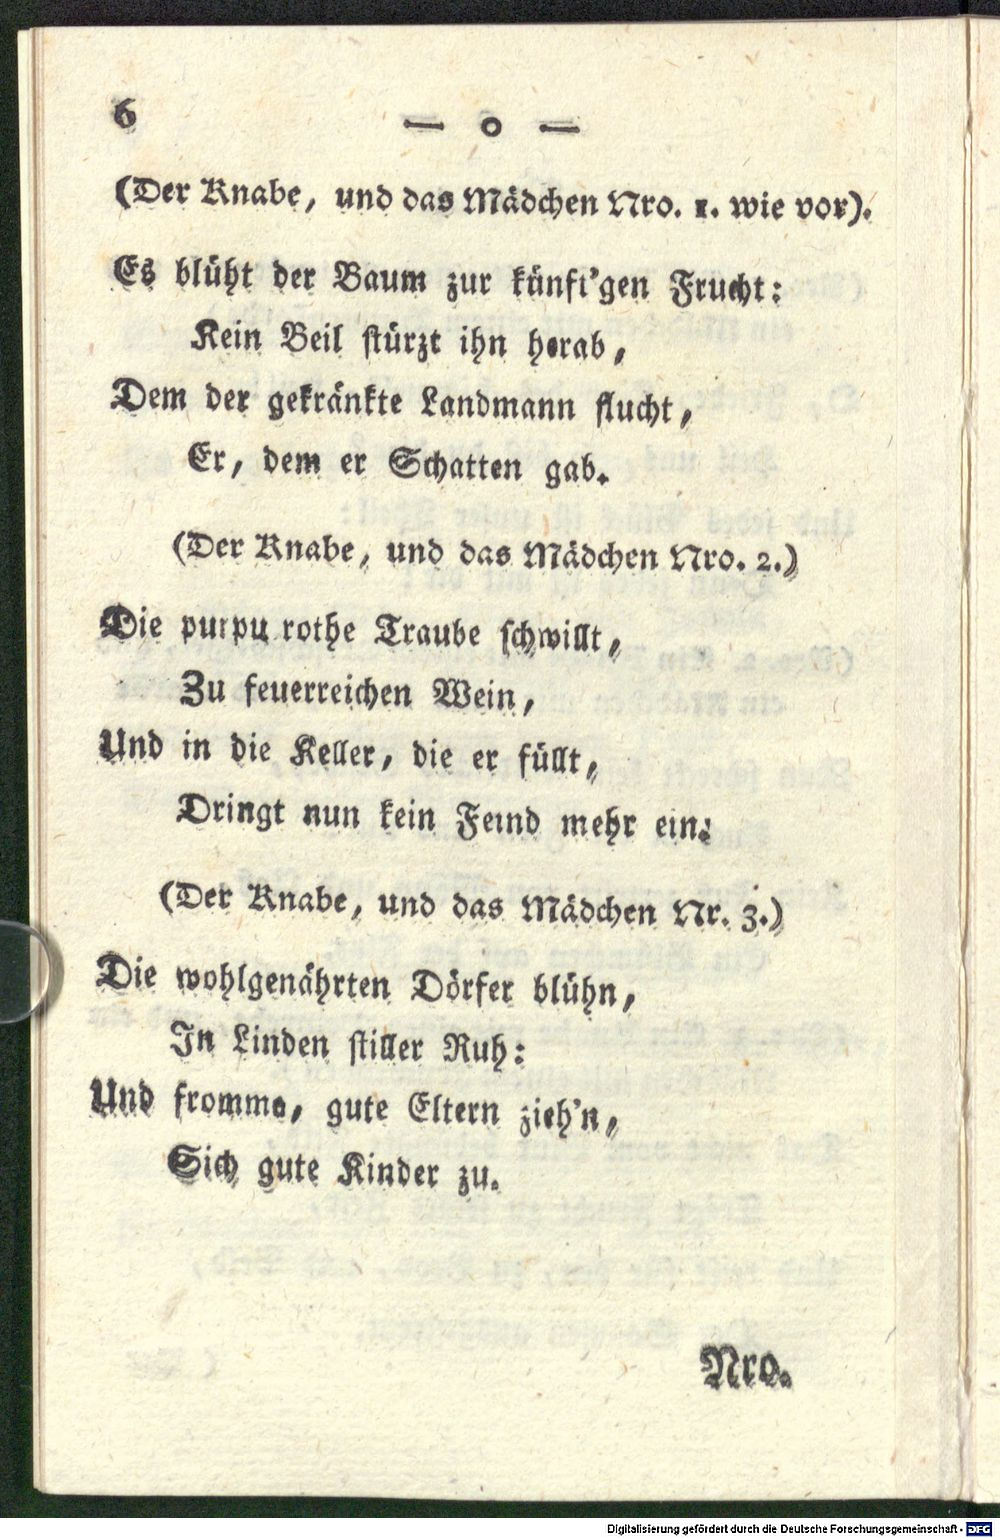 6
— o —
(Der Knabe, und das Mädchen Nro. 1. wie vor).
Es blüht der Baum zur künft'gen Frucht:
Kein Beil stürzt ihn herab,
Dem der gekränkte Landmann flucht,
Er, dem er Schatten gab.
(Der Knabe, und das Mädchen Nro. 2.)
Die purpurrothe Traube schwillt,
Zu feuerreichen Wein,
Und in die Keller, die er füllt,
Dringt nun kein Feind mehr ein.
(Der Knabe, und das Mädchen Nr. 3.)
Die wohlgenährten Dörfer blühn,
In Linden stiller Ruh:
Und fromme, gute Eltern zieh'n,
Sich gute Kinder zu.
Nro.
Digitalisierung gefördert durch die Deutsche Forschungsgemeinschaft - DFG